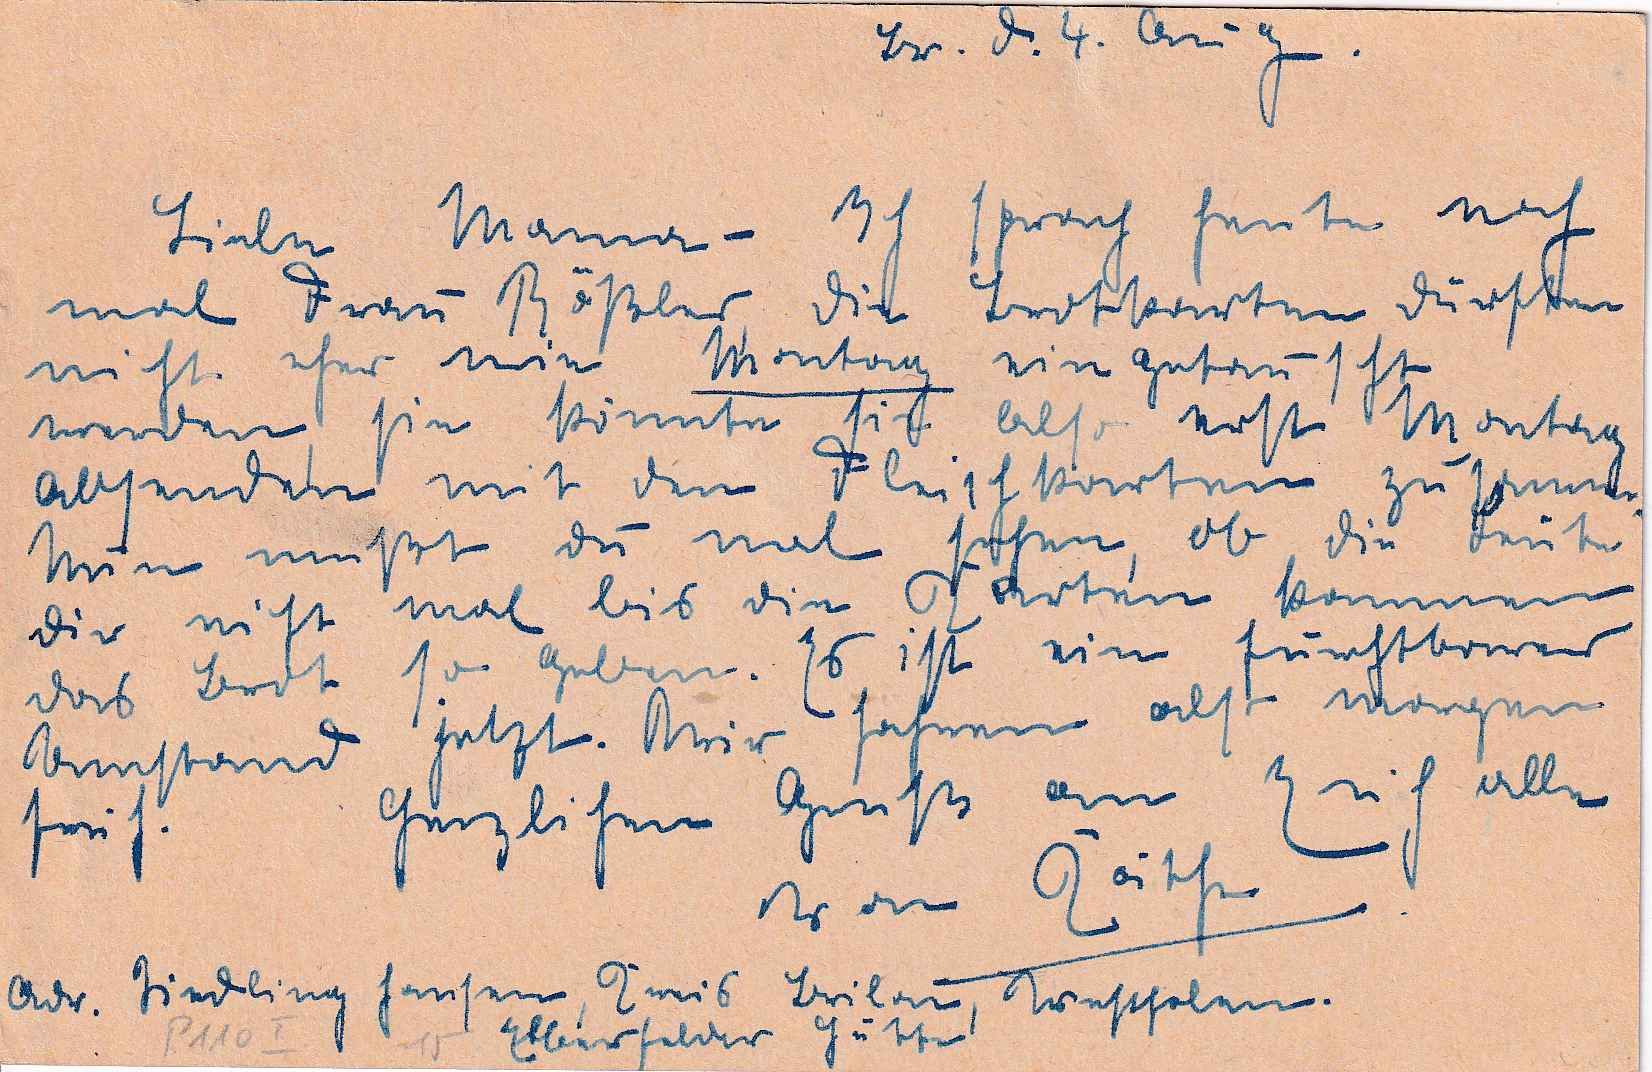 Br. d. 4. Aug.
Liebe Mama – Ich sprach heute noch
mal Frau Rößler, die Brotkarten dürften
nicht eher wie Montag eingetauscht
werden, sie könnte sie also erst Montag
absenden mit den Fleischkarten zusammen.
Nun mußt du mal sehen, ob die Leute
dir nicht mal bis die Karten kommen
das Brot so geben. Es ist ein furchtbarer
Umstand jetzt. Wir fahren erst morgen
früh. Herzlichen Gruß an Euch alle
von Käthe.
Adr. Siedlinghausen, Kreis Brilon, Westfalen.
Elberfelder Hütte
P110 I 15